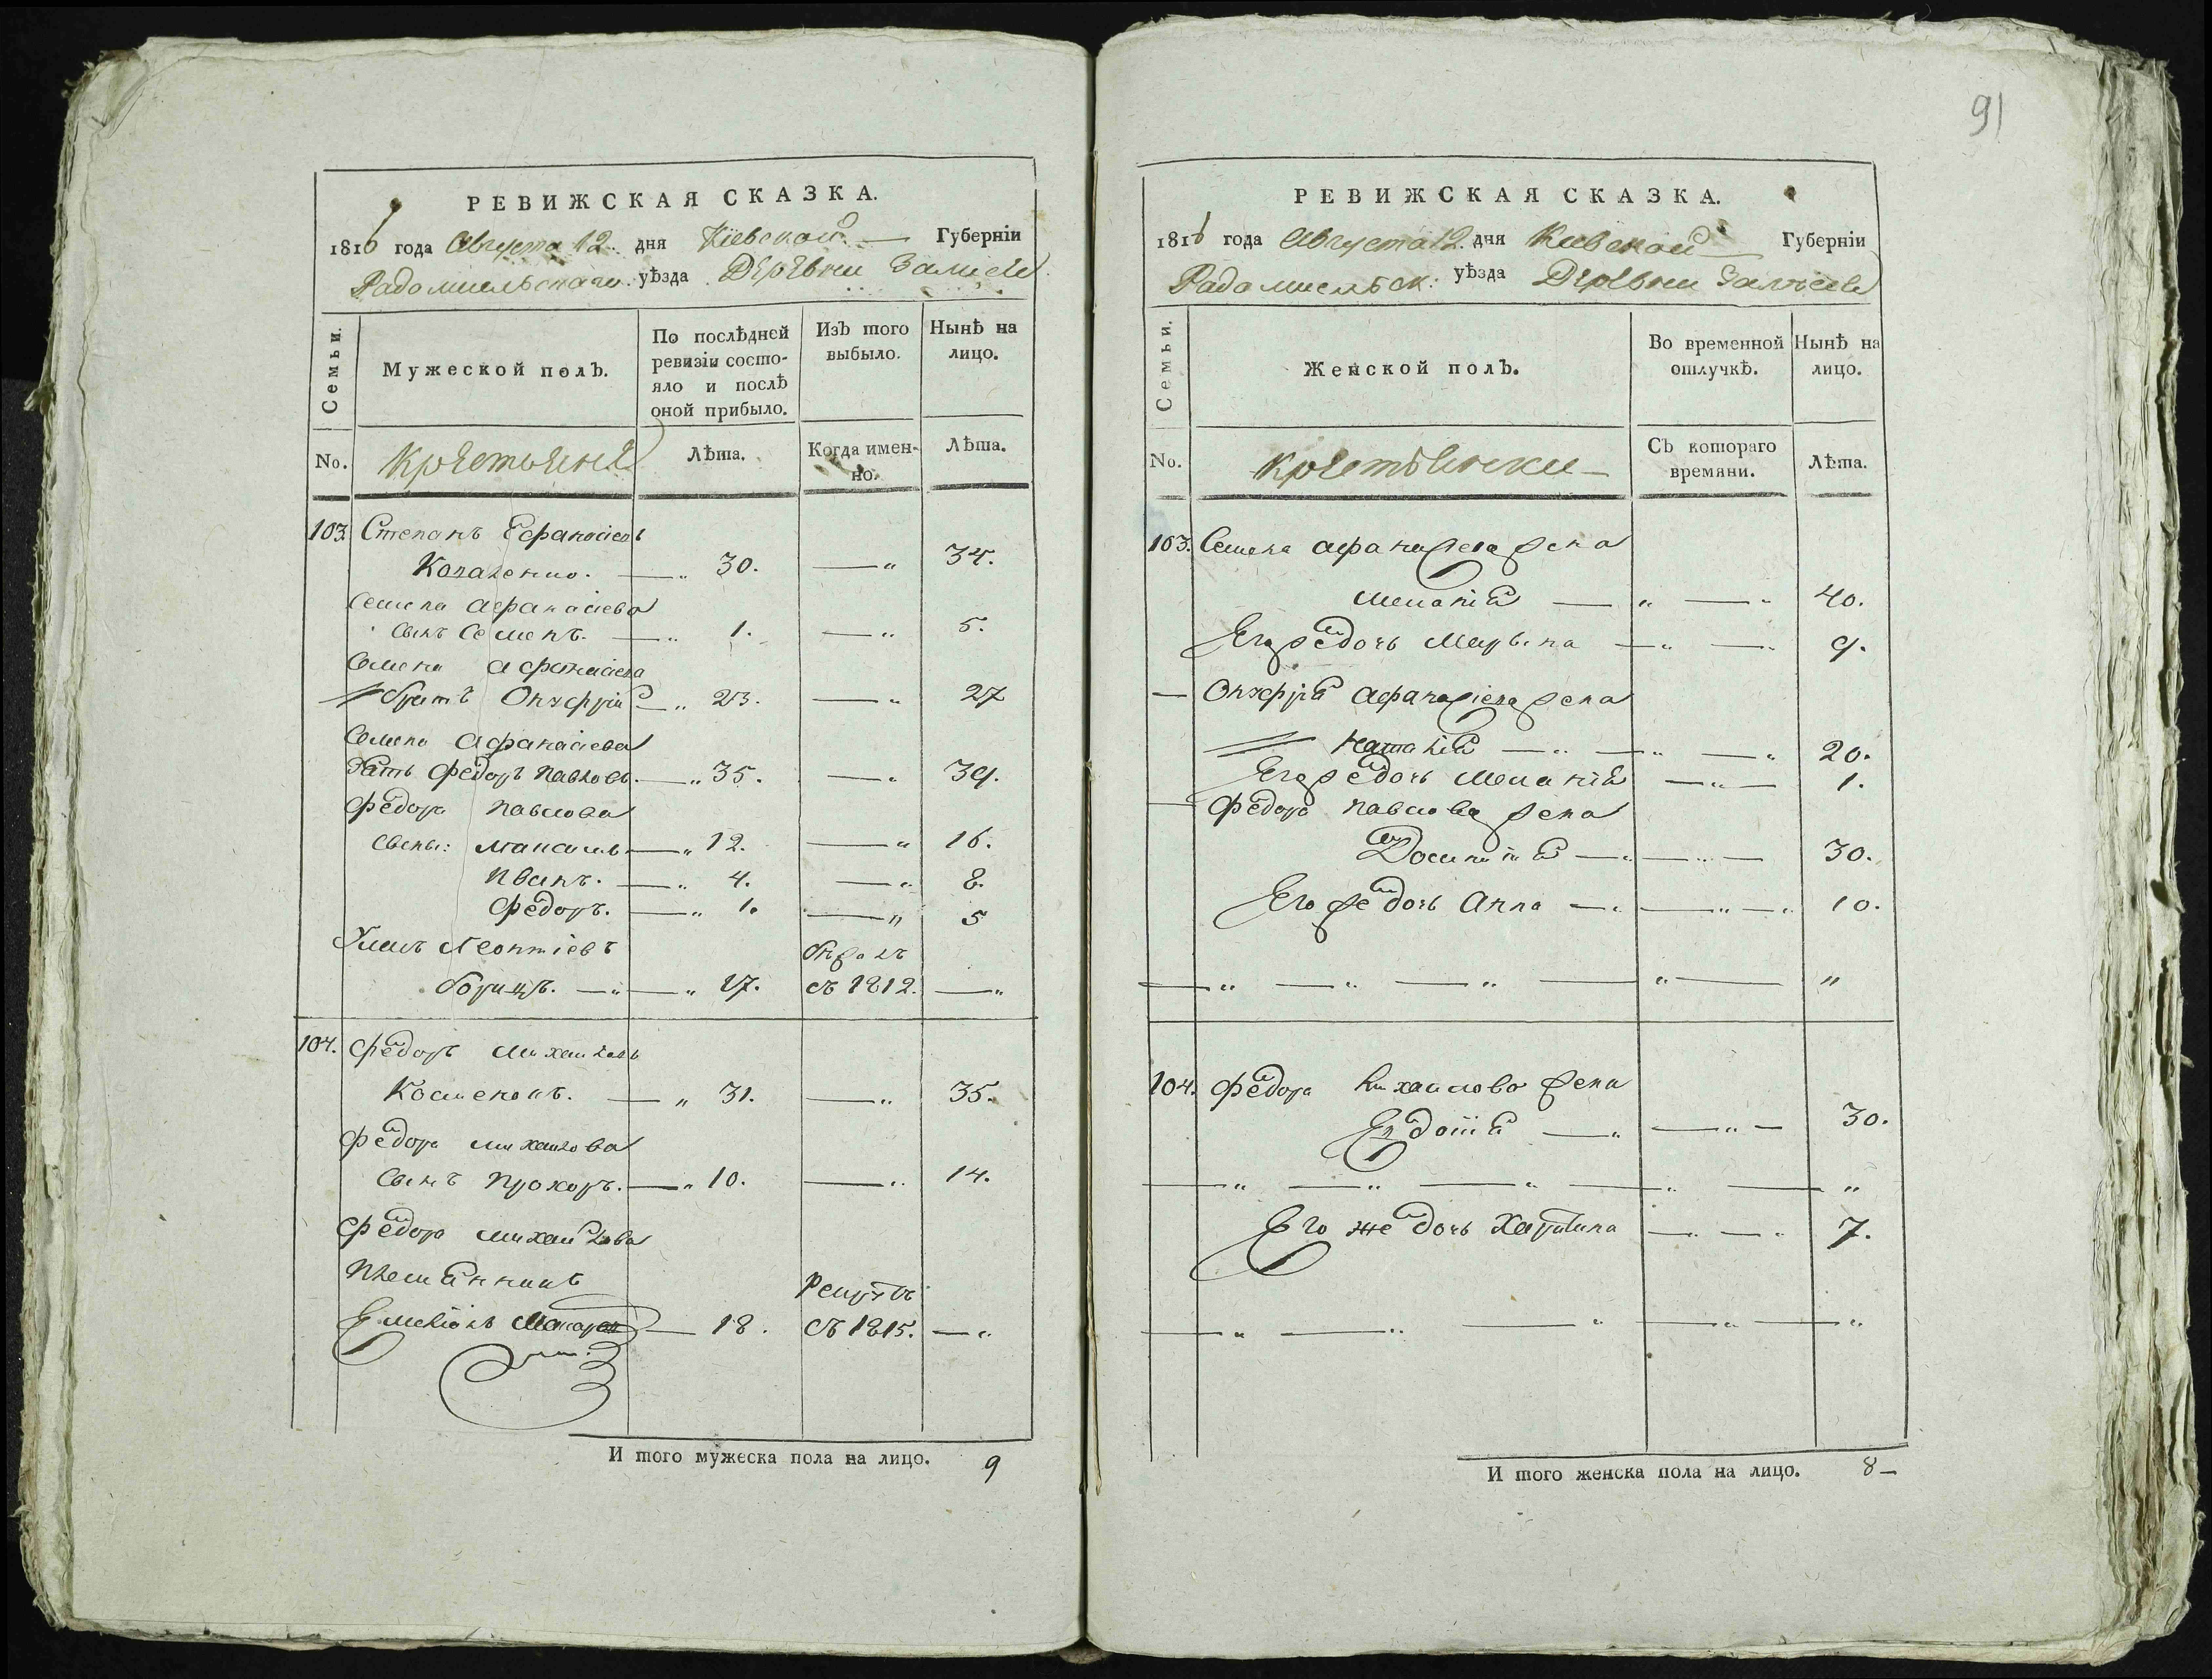 91
РЕВИЖСКАЯ СКАЗКА.
1816 года Августа 12 дня Кіевской Губерніи
Радомысльскаго уѣзда Деревни
Семьи.
Мужеской полЪ.
По послѣдней ревизіи состояло и послѣ оной прибыло.
ИзЪ того выбыло.
Нынѣ на лицо.
No.
Крестьяне
Лѣта.
Когда именно.
Лѣта.
103. Степанъ
— „ 30. — „ 34.
Семена Афанасіева
сынъ Семенъ. — „ 1. — „ 5.
Семена Афанасіева
братъ Онуфрій — „ 23. — „ 27
Семена Афанасіева
зять Федоръ Павловъ. — „ 35. — „ 39.
Федора Павлова
сыны: — „ 12. — „ 16.
Иванъ. — „ 4. — „ 8.
Федоръ. — „ 1. — „ 5
Леонтіевъ
— „ — „ 17. съ 1812. — „
104. Федоръ Михайловъ
— „ 31. — „ 35.
Федора Михайлова
сынъ Прохоръ. — „ 10. — „ 14.
Федора Михайлова
племянникъ
Рекрутъ
Емельянъ — 18. съ 1815. — „
И того мужеска пола на лицо. 9
РЕВИЖСКАЯ СКАЗКА.
1816 года Августа 12 дня Киевской Губерніи
Радомысльск: уѣзда Деревни
Семьи.
Женской полЪ.
Во временной отлучкѣ.
Нынѣ на лицо.
No.
Крестьянки —
СЪ котораго времяни.
Лѣта.
103. Семена Афанасіева жена
Меланія — „ — „ 40.
Его же дочь Марьяна — „ — „ 9.
— Онуфрія Афанасіева жена
Наталія — „ — „ — „ 20.
Его же дочь Меланія — „ — 1.
— Федора Павлова жена
— „ — „ — 30.
Его же дочь Анна — „ — „ — „ 10.
— „ — „ — „ — „ — „
104. Федора Михайлова жена
Евдокія — „ — „ — 30.
— „ — „ — „ — „ — „
Его же дочь Харитина — „ — „ 7.
— „ — „ — „ — „ — „
И того женска пола на лицо. 8 —